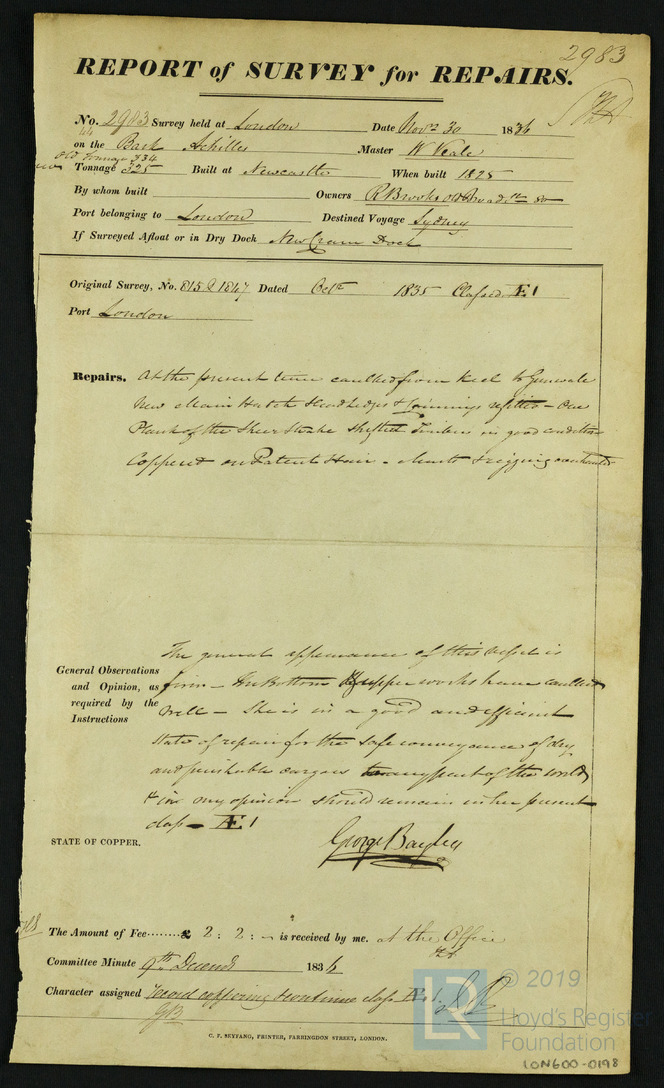 2983
REPORT of SURVEY for REPAIRS.
No. 2983 Survey held at London Date Novr 30 1836
on the Bark Achilles Master W Veale
Old Tonnage 334
new Tonnage 325 Built at Newcastle When built 1825
By whom built Owners R Brooks Old Broad St
Port belonging to London Destined Voyage Sydney
If Surveyed Afloat or in Dry Dock New Crane Dock
Original Survey, No. 815 & 1847 Dated Octr 1835 Classed Æ1
Port London
Repairs. At the present time caulked from Keel to Gunwale
New Main Hatch Headledges & Coamings refitted - One
Plank of the Sheer Strake shifted Timbers in good condition
Copperd on Patent Hair - Masts & rigging overhauled
The general appearance of this vessel is
General Observations and Opinion, as required by the Instructions
firm - the Bottom & upper works have caulked
well - She is in a good and efficient
state of repair for the safe conveyance of dry
and perishable cargoes to any part of the world
& in my opinion should remain in her present
class - Æ1
STATE OF COPPER.
George Bayley
The Amount of Fee........ 2 : 2 : - is received by me. at the Office
Committee Minute 9th Decemb 1836
Character assigned record coppering & continue class Æ1.
GB
C. F. SEYFANG, PRINTER, FARRINGDON STREET, LONDON.
LR
© 2019
Lloyd's Register
Foundation
LON600-0198